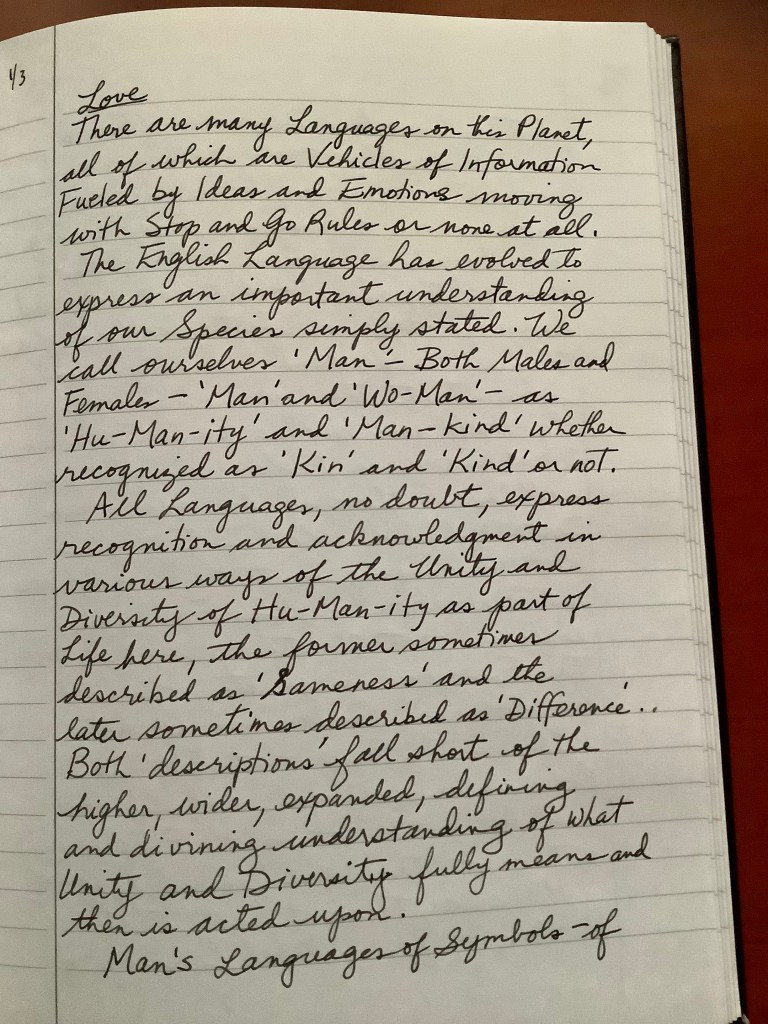 1/3
Love
There are many Languages on this Planet,
all of which are Vehicles of Information
Fueled by Ideas and Emotions moving
with Stop and Go Rules or none at all.
The English Language has evolved to
express an important understanding
of our Species simply stated. We
call ourselves 'Man' – Both Males and
Females – 'Man' and 'Wo-Man' – as
'Hu-Man-ity' and 'Man-kind' whether
recognized as 'Kin' and 'Kind' or not.
All Languages, no doubt, express
recognition and acknowledgment in
various ways of the Unity and
Diversity of Hu-Man-ity as part of
Life here, the former sometimes
described as 'Sameness' and the
later sometimes described as 'Difference'..
Both 'descriptions' fall short of the
higher, wider, expanded, defining
and divining understanding of what
Unity and Diversity fully means and
then is acted upon.
Man's Languages of Symbols – of